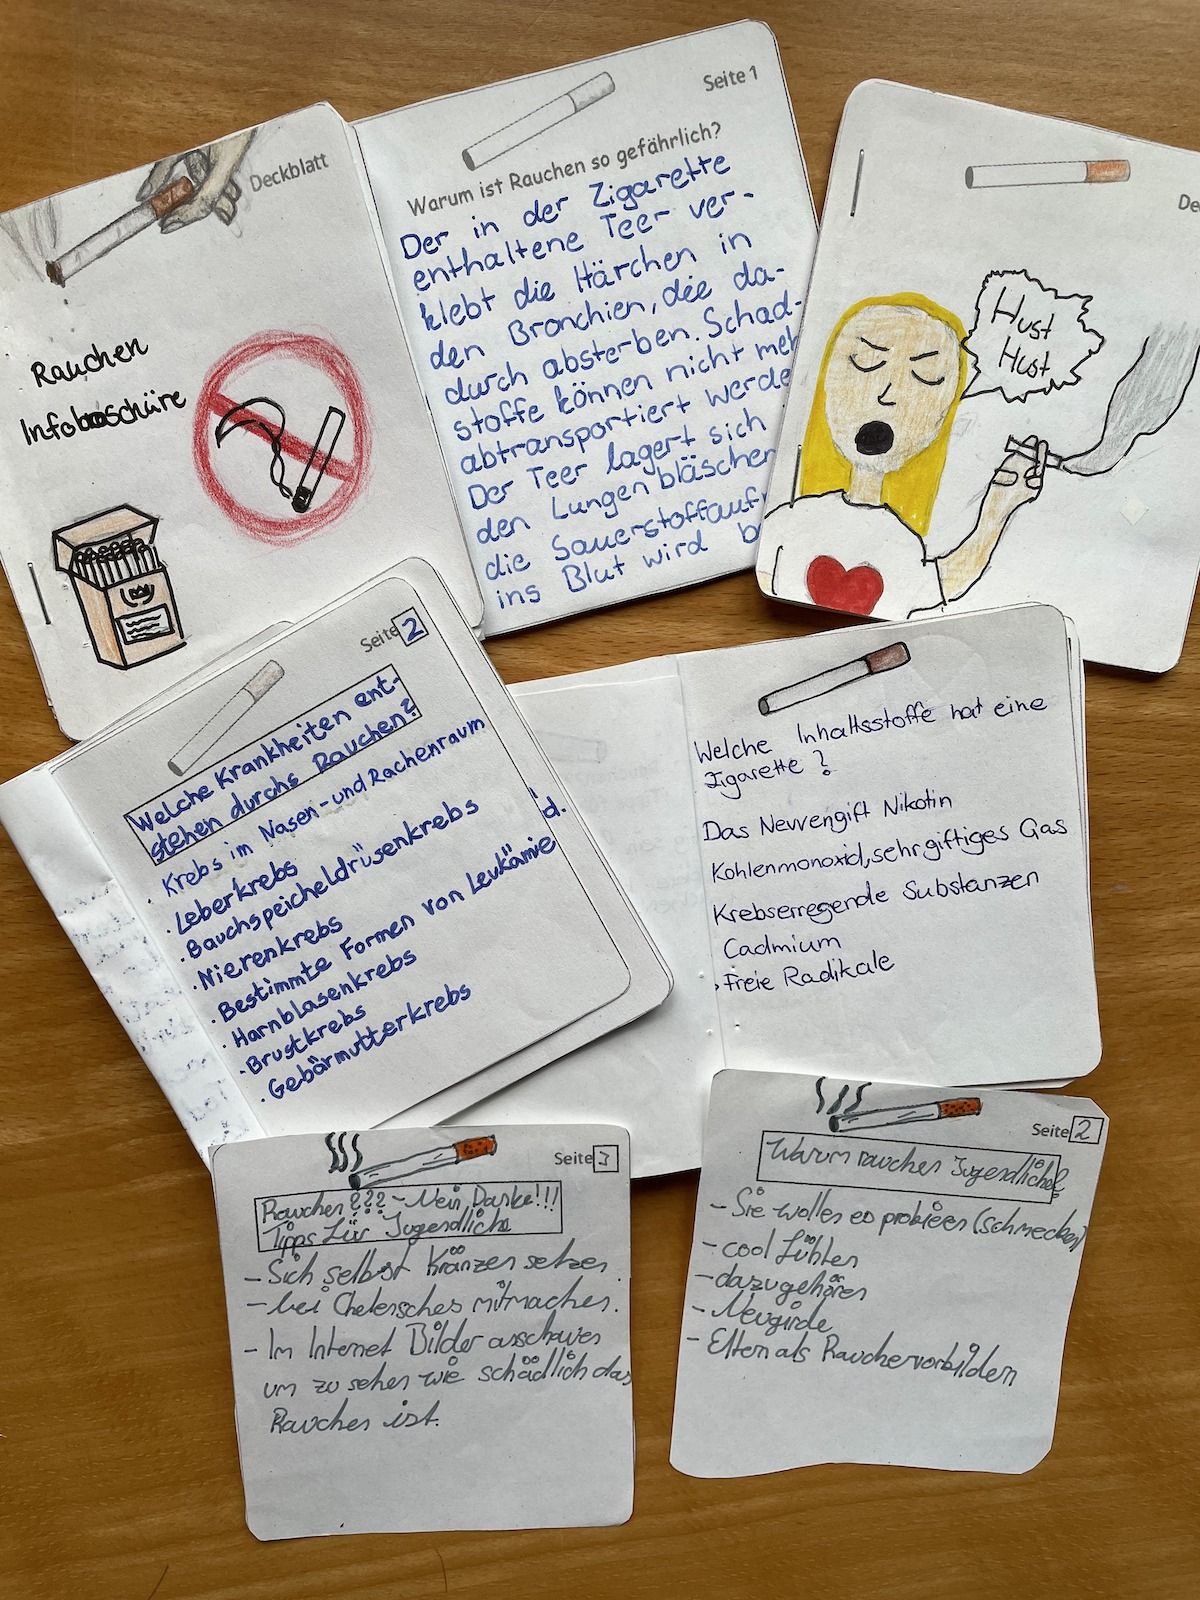 Deckblatt
Rauchen
Infobroschüre
Seite 1
Warum ist Rauchen so gefährlich?
Der in der Zigarette
enthaltene Teer ver-
klebt die Härchen in
den Bronchien, die da-
durch absterben. Schad-
stoffe können nicht meh
abtransportiert werde
Der Teer lagert sich
den Lungen bläschen
die Sauerstoffauf
ins Blut wird b
De
Hust
Hust
Seite 2
Welche Krankheiten ent-
stehen durchs Rauchen?
Krebs im Nasen- und Rachenraum
. Leberkrebs
. Bauchspeicheldrüsenkrebs
. Nierenkrebs
. Bestimmte Formen von Leukämie
. Harnblasenkrebs
. Brustkrebs
. Gebärmutterkrebs
d.
Welche Inhaltsstoffe hat eine
Zigarette?
Das Nervengift Nikotin
Kohlenmonoxid, sehr giftiges Gas
Krebserregende Substanzen
Cadmium
. freie Radikale
Seite 3
Rauchen??? - Nein, Danke!!!
Tipps für Jugendliche
- Sich selbst Gränzen setzen
- bei mitmachen.
- Im Internet Bilder anschauen
um zu sehen wie schädlich das
Rauchen ist.
Seite 2
Warum rauchen Jugendliche?
- Sie wollen es probieren (schmecken)
- cool fühlen
- dazugehören
- Neugirde
- Eltern als Rauchervorbildern